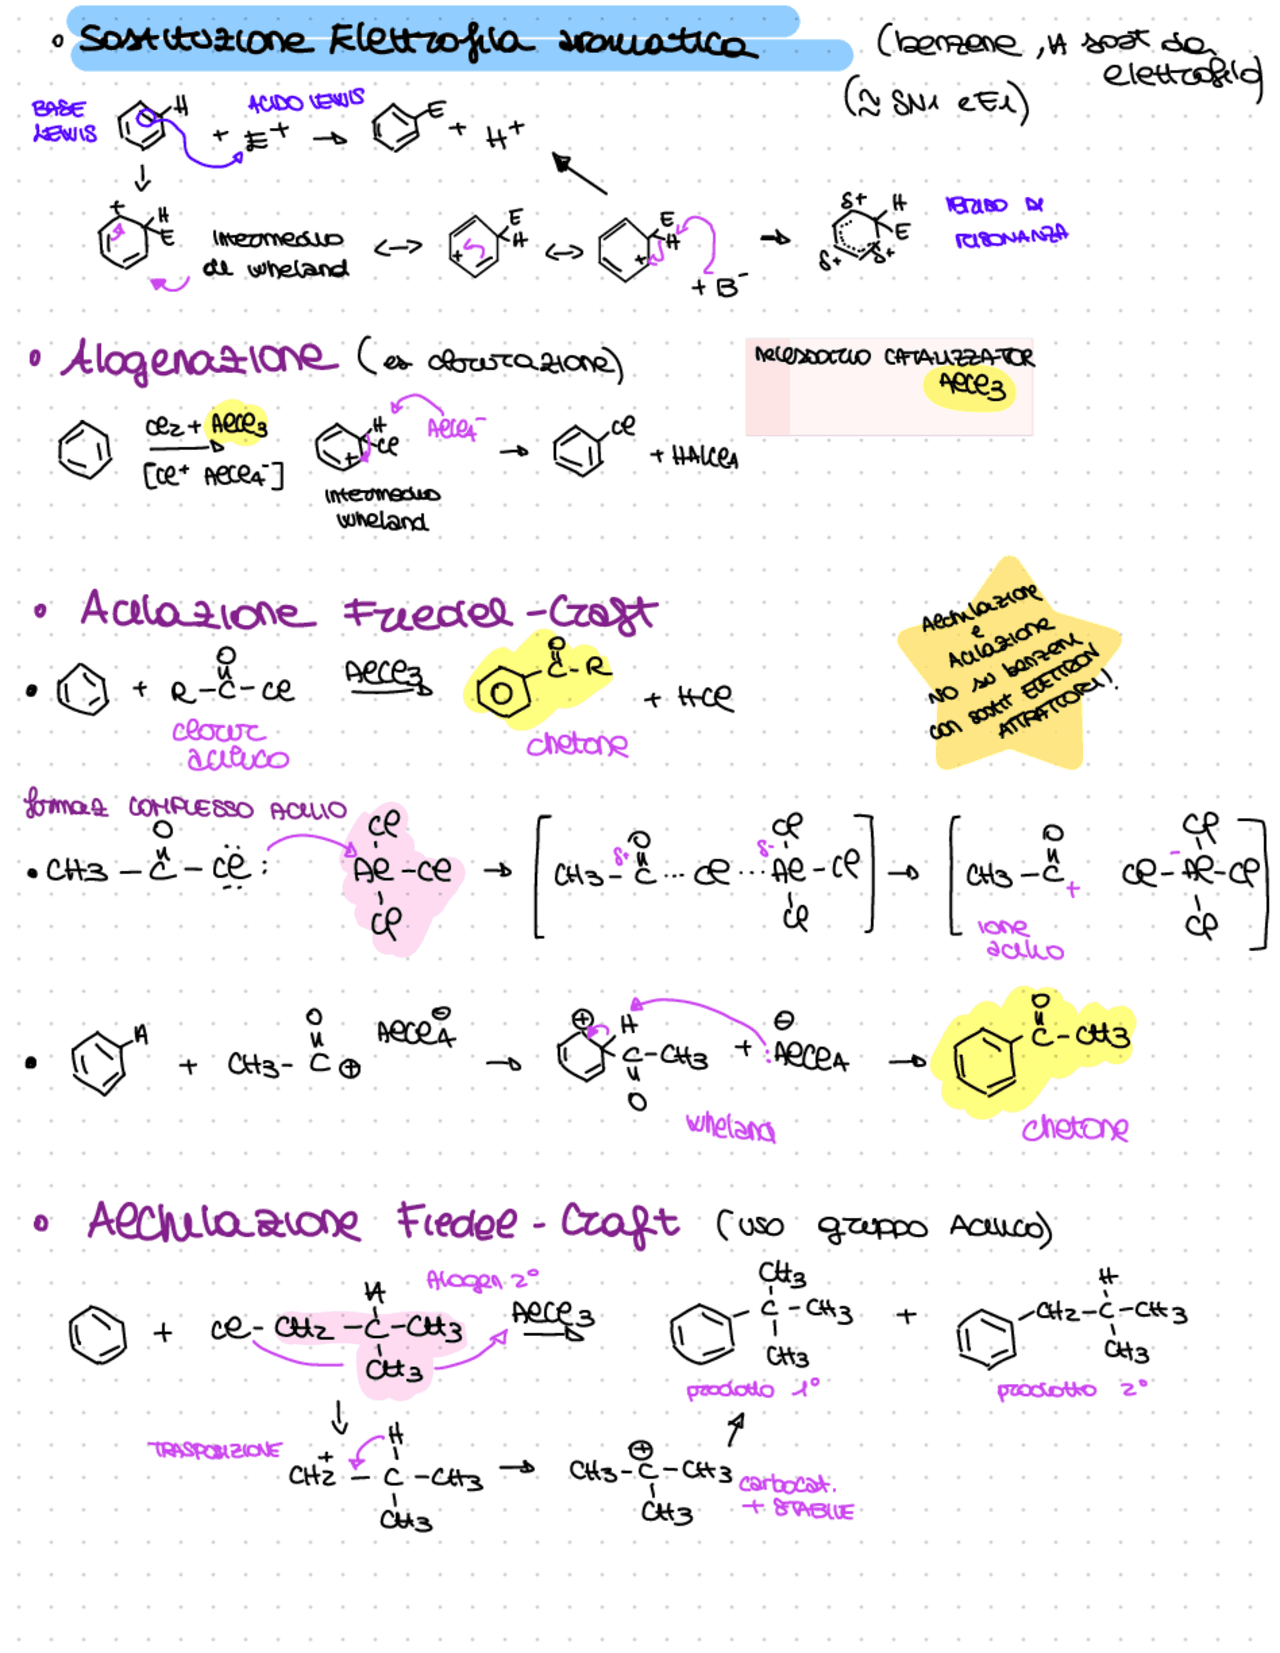 • Sostituzione Elettrofila aromatica
(benzene, H sost da
elettrofilo)
(≈ SN1 e E1)
BASE
LEWIS
H
+ E+
ACIDO LEWIS
→
E
+ H+
↓
+
H
E
Intermedio
di wheland
↔
E
H
+
↔
E
H
+
+ B-
→
δ+
H
E
δ+
δ+
IBRIDO DI
RISONANZA
• Alogenazione (es clorurazione)
necessario CATALIZZATOR
AlCl3
Cl2 + AlCl3
[Cl+ AlCl4-]
H
Cl
+
AlCl4-
→
Cl
+ HAlCl4
intermedio
wheland
• Acilazione Friedel-Craft
Alchilazione
e
Acilazione
NO su benzeni
con sostit ELETTRON
ATTRATTORI!
• + R-C-Cl
O
AlCl3
O
C-R
+ HCl
clorur
acilico
chetone
formaz COMPLESSO ACILIO
• CH3 - C - Cl :
O
Cl
Al - Cl
Cl
→ [ CH3 - C ... Cl ... Al - Cl ]
δ+ O
δ- Cl
Cl
→ [ CH3 - C + Cl - Al - Cl ]
O
- Cl
Cl
ione
acilio
•
H
+ CH3 - C ⊕
O
AlCl4 ⊖
→
⊕
H
C - CH3
O
+ : AlCl4
⊖
→
O
C - CH3
wheland
chetone
• Alchilazione Fiedel - Craft (uso gruppo Acilico)
Alogen 2°
+ Cl - CH2 - C - CH3
H
CH3
AlCl3
CH3
C - CH3
CH3
+
H
CH2 - C - CH3
CH3
prodotto 1°
prodotto 2°
↓
TRASPOSIZIONE
H
CH2 + - C - CH3
CH3
→
CH3 - C - CH3
⊕
CH3
carbocat.
+ STABILE